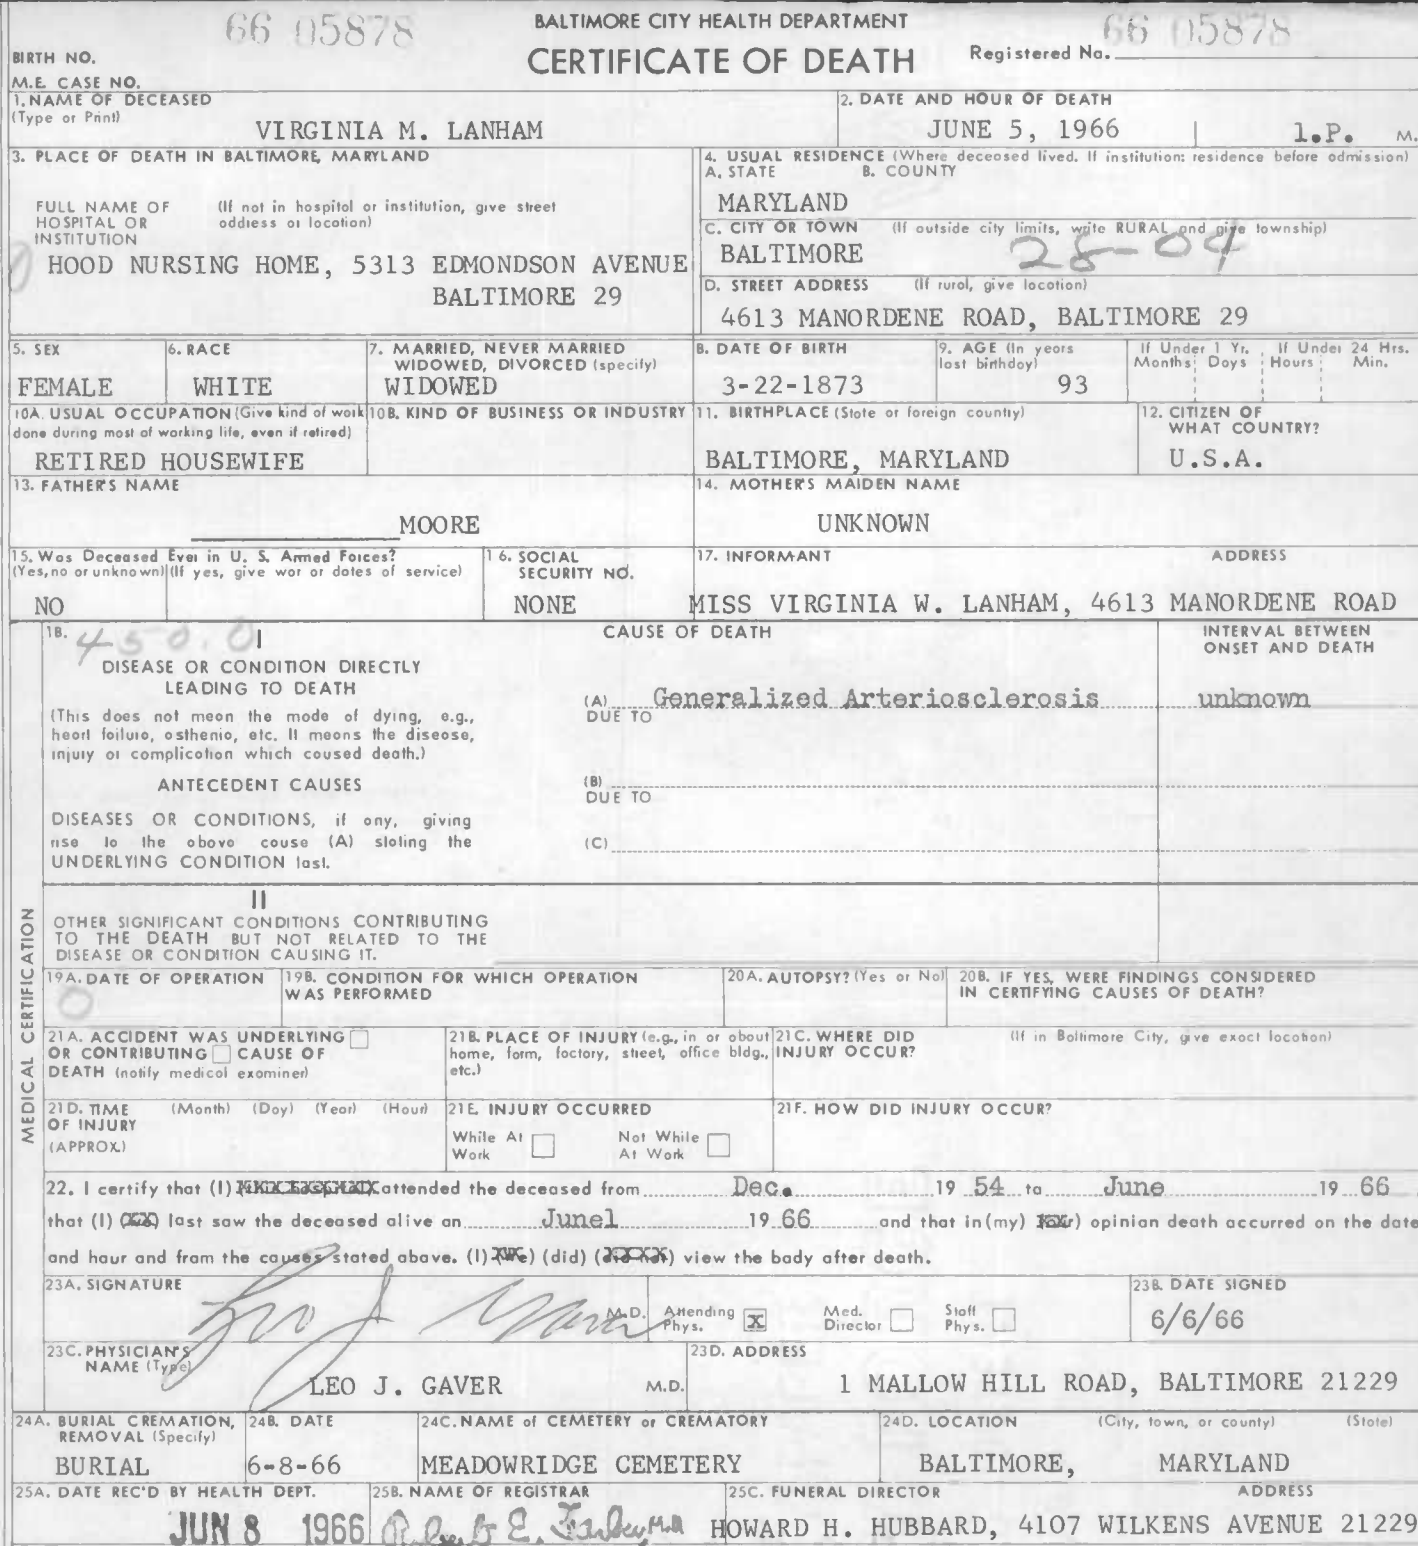 66 05878 BALTIMORE CITY HEALTH DEPARTMENT 66 05878
BIRTH NO. CERTIFICATE OF DEATH Registered No.
M.E. CASE NO.
1. NAME OF DECEASED
(Type or Print)
VIRGINIA M. LANHAM
2. DATE AND HOUR OF DEATH
JUNE 5, 1966 1.P. M.
3. PLACE OF DEATH IN BALTIMORE, MARYLAND
FULL NAME OF HOSPITAL OR INSTITUTION
(If not in hospital or institution, give street address or location)
HOOD NURSING HOME, 5313 EDMONDSON AVENUE
BALTIMORE 29
4. USUAL RESIDENCE (Where deceased lived. If institution: residence before admission)
A. STATE B. COUNTY
MARYLAND
C. CITY OR TOWN (If outside city limits, write RURAL and give township)
BALTIMORE 28-04
D. STREET ADDRESS (If rural, give location)
4613 MANORDENE ROAD, BALTIMORE 29
5. SEX
FEMALE
6. RACE
WHITE
7. MARRIED, NEVER MARRIED
WIDOWED, DIVORCED (specify)
WIDOWED
8. DATE OF BIRTH
3-22-1873
9. AGE (In years
last birthday)
93
If Under 1 Yr. If Under 24 Hrs.
Months Days Hours Min.
10A. USUAL OCCUPATION (Give kind of work
done during most of working life, even if retired)
RETIRED HOUSEWIFE
10B. KIND OF BUSINESS OR INDUSTRY
11. BIRTHPLACE (State or foreign country)
BALTIMORE, MARYLAND
12. CITIZEN OF
WHAT COUNTRY?
U.S.A.
13. FATHER'S NAME
MOORE
14. MOTHER'S MAIDEN NAME
UNKNOWN
15. Was Deceased Ever in U. S. Armed Forces?
(Yes, no or unknown) (If yes, give war or dates of service)
NO
16. SOCIAL
SECURITY NO.
NONE
17. INFORMANT ADDRESS
MISS VIRGINIA W. LANHAM, 4613 MANORDENE ROAD
MEDICAL CERTIFICATION
18. 450.0 I
DISEASE OR CONDITION DIRECTLY
LEADING TO DEATH
(This does not mean the mode of dying, e.g.,
heart failure, asthenia, etc. It means the disease,
injury or complication which caused death.)
ANTECEDENT CAUSES
DISEASES OR CONDITIONS, if any, giving
rise to the above cause (A) stating the
UNDERLYING CONDITION last.
CAUSE OF DEATH
INTERVAL BETWEEN
ONSET AND DEATH
(A) Generalized Arteriosclerosis unknown
DUE TO
(B)
DUE TO
(C)
II
OTHER SIGNIFICANT CONDITIONS CONTRIBUTING
TO THE DEATH BUT NOT RELATED TO THE
DISEASE OR CONDITION CAUSING IT.
19A. DATE OF OPERATION
0
19B. CONDITION FOR WHICH OPERATION
WAS PERFORMED
20A. AUTOPSY? (Yes or No)
20B. IF YES, WERE FINDINGS CONSIDERED
IN CERTIFYING CAUSES OF DEATH?
21A. ACCIDENT WAS UNDERLYING
OR CONTRIBUTING CAUSE OF
DEATH (notify medical examiner)
21B. PLACE OF INJURY (e.g., in or about
home, farm, factory, street, office bldg.,
etc.)
21C. WHERE DID (If in Baltimore City, give exact location)
INJURY OCCUR?
21D. TIME (Month) (Day) (Year) (Hour)
OF INJURY
(APPROX.)
21E. INJURY OCCURRED
While At Work Not While At Work
21F. HOW DID INJURY OCCUR?
22. I certify that (I) attended the deceased from Dec. 19 54 to June 19 66
that (I) last saw the deceased alive on June1 19 66 and that in (my) opinion death occurred on the date
and hour and from the causes stated above. (I) (did) view the body after death.
23A. SIGNATURE
Leo J Gaver M.D.
Attending Phys. X Med. Director Staff Phys.
23B. DATE SIGNED
6/6/66
23C. PHYSICIAN'S
NAME (Type)
LEO J. GAVER M.D.
23D. ADDRESS
1 MALLOW HILL ROAD, BALTIMORE 21229
24A. BURIAL CREMATION,
REMOVAL (Specify)
BURIAL
24B. DATE
6-8-66
24C. NAME of CEMETERY or CREMATORY
MEADOWRIDGE CEMETERY
24D. LOCATION (City, town, or county) (State)
BALTIMORE, MARYLAND
25A. DATE REC'D BY HEALTH DEPT.
JUN 8 1966
25B. NAME OF REGISTRAR
Robert E. Farber, M.D.
25C. FUNERAL DIRECTOR ADDRESS
HOWARD H. HUBBARD, 4107 WILKENS AVENUE 21229